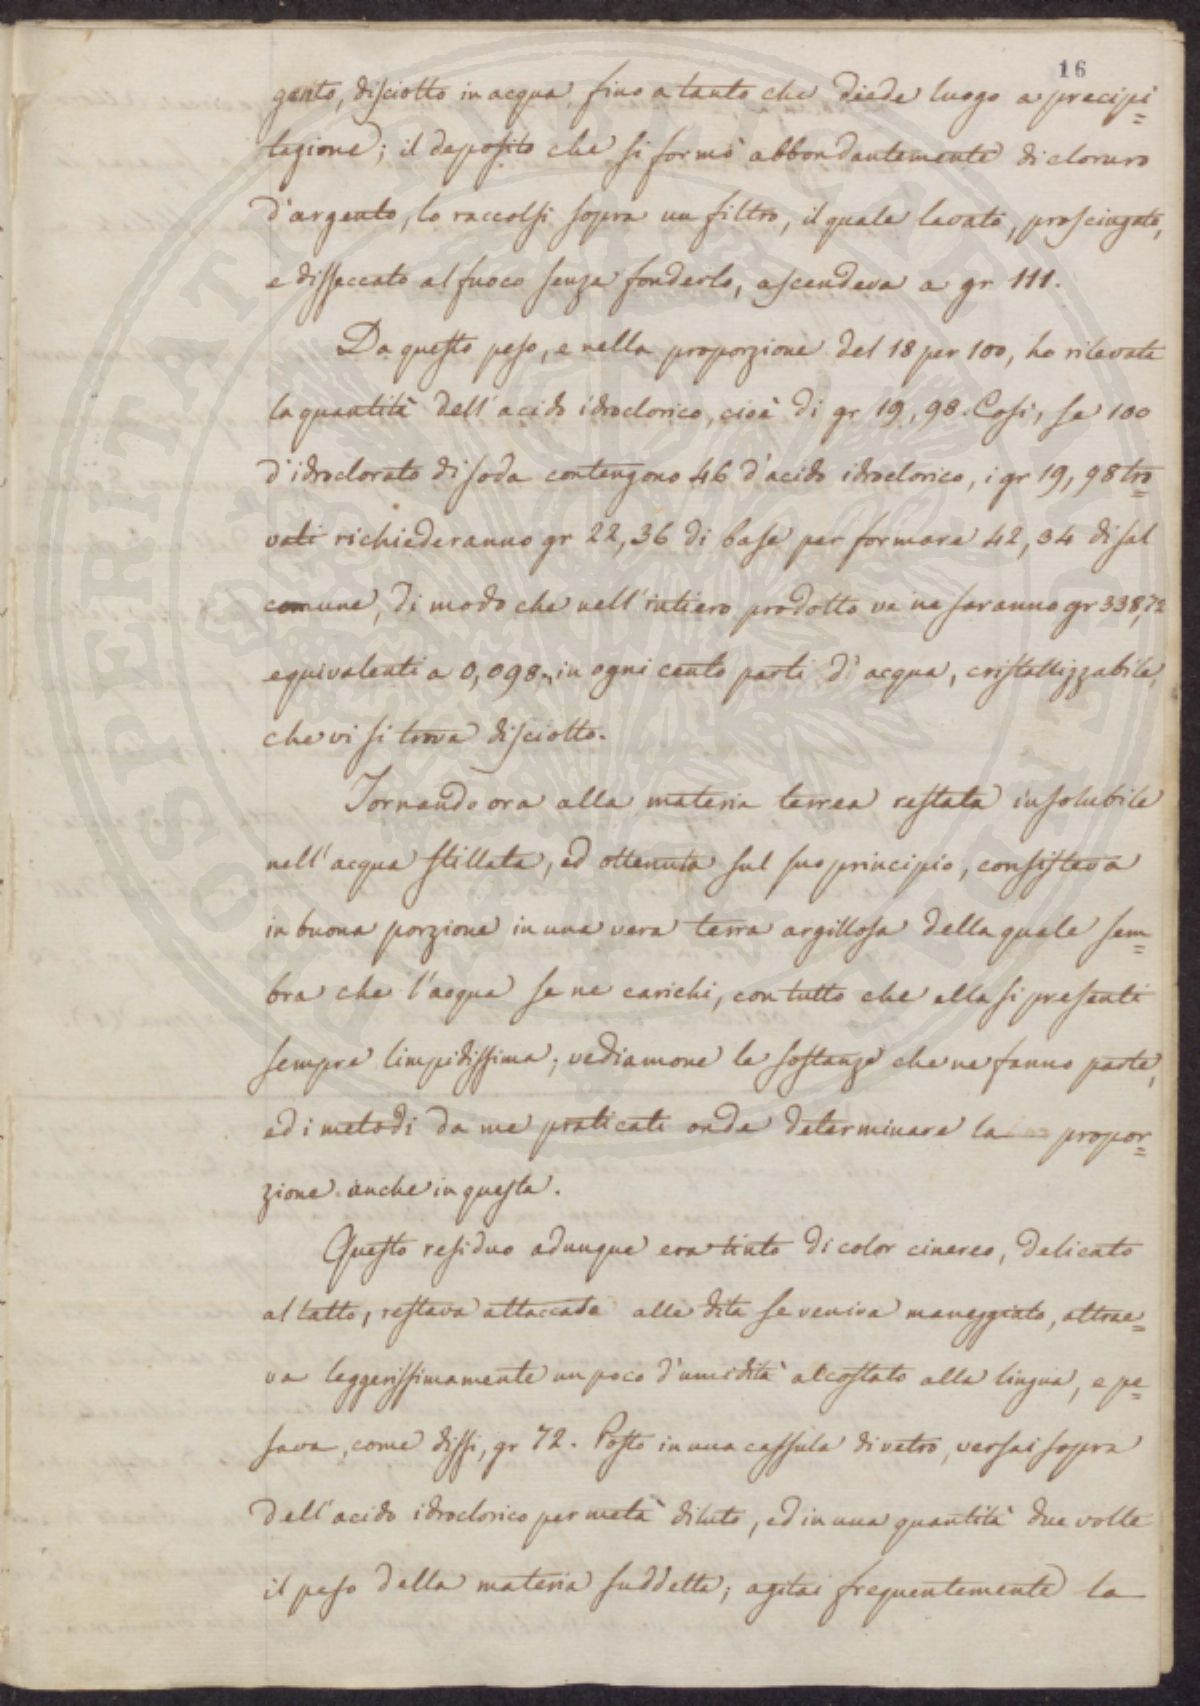 16
gento, disciolto in acqua fino a tanto che diede luogo a precipi=
tazione; il deposito che si formò abbondantemente di cloruro
d'argento, lo raccolsi sopra un filtro, il quale lavato, prosciugato,
e disseccato al fuoco senza fonderlo, ascendeva a gr 111.
Da questo peso, e nella proporzione del 18 per 100, ho rilevata
la quantità dell'acido idroclorico, cioè di gr 19,98. Così, se 100
d'idroclorato di soda contengono 46 d'acido idroclorico, i gr 19,98 tro=
vati richiederanno gr 22,36 di base per formare 42,34 di sal
comune, di modo che nell'intiero prodotto ve ne saranno gr 338,72
equivalenti a 0,098, in ogni cento parti d'acqua, cristallizzabile,
che vi si trova disciolto.
Tornando ora alla materia terrea restata insolubile
nell'acqua stillata, ed ottenuta sul suo principio, consisteva
in buona porzione in una vera terra argillosa della quale sem=
bra che l'acqua se ne carichi, con tutto che ella si presenti
sempre limpidissima; vediamone le sostanze che ne fanno parte,
ed i metodi da me praticati onde determinare la propor=
zione anche in questa.
Questo residuo adunque era tinto di color cinereo, delicato
al tatto, restava attaccato alle dita se veniva maneggiato, attrae=
va leggerissimamente un poco d'umidità accostato alla lingua, e pe=
sava, come dissi, gr 72. Posto in una cassula di vetro, versai sopra
dell'acido idroclorico per metà diluto, ed in una quantità due volte
il peso della materia suddetta; agitai frequentemente la
PROSPERITATI PUBLICAE AUGENDAE